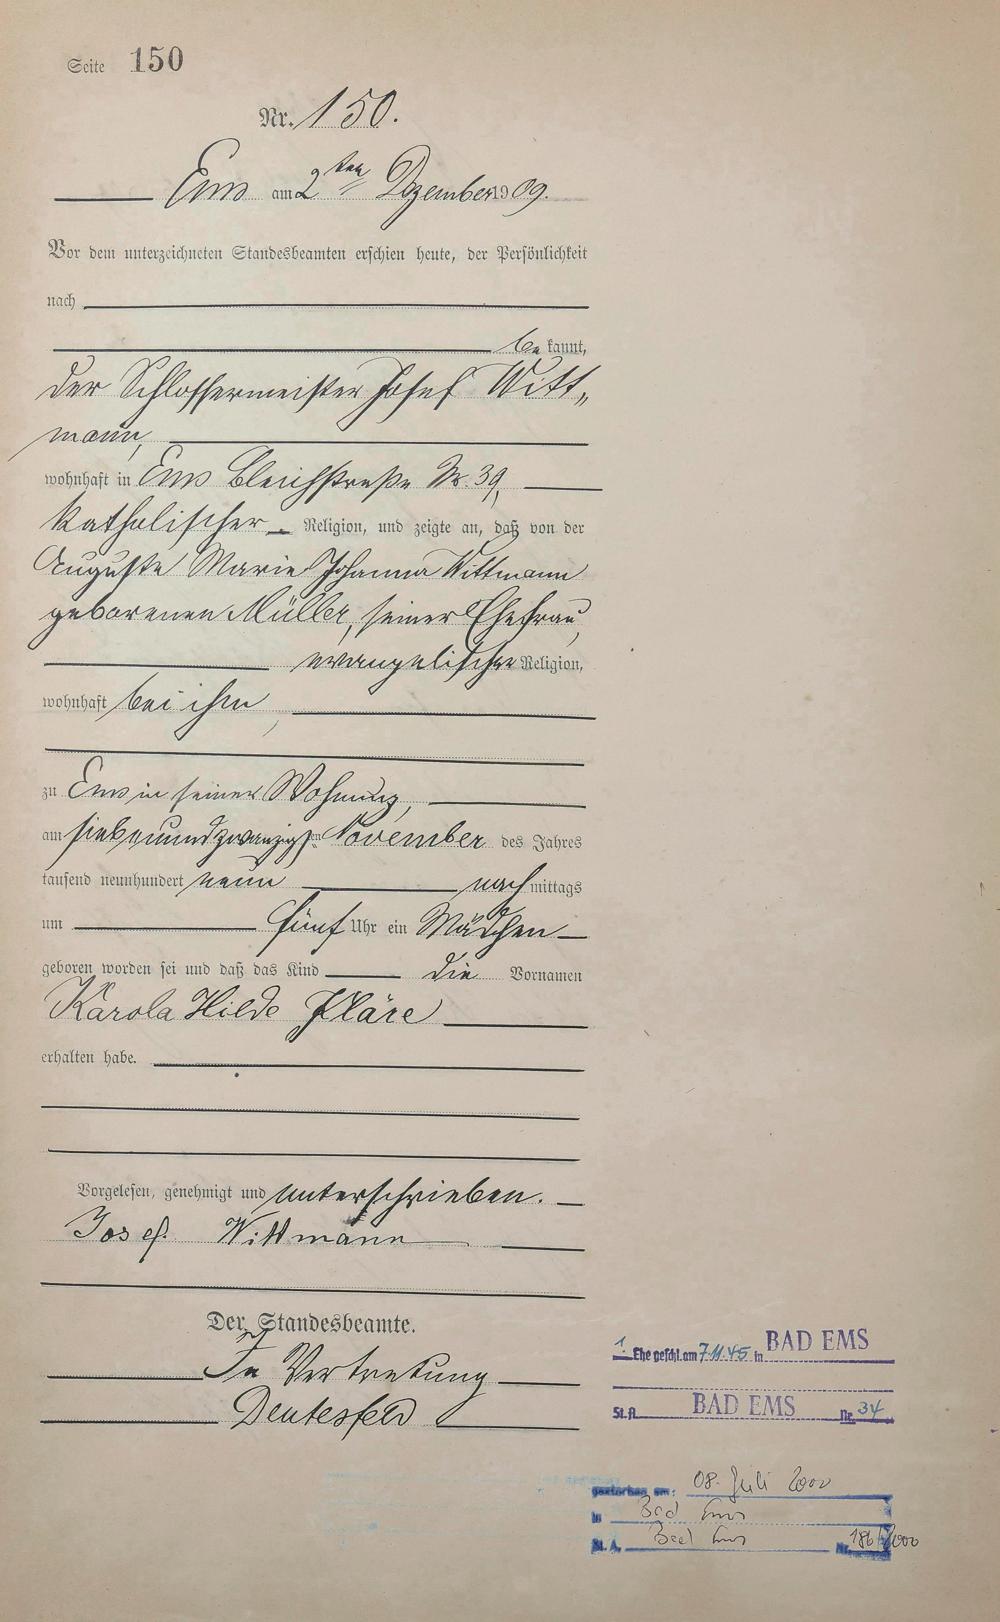 Seite 150
Nr. 150.
Ems am 2ten Dezember 1909.
Vor dem unterzeichneten Standesbeamten erschien heute, der Persönlichkeit
nach
be kannt,
der Schlossermeister Josef Witt„
mann,
wohnhaft in Ems Bleichstraße Nr. 39,
katholischer Religion, und zeigte an, daß von der
Auguste Marie Johanna Wittmann
geborenen Müller, seiner Ehefrau,
evangelischer Religion,
wohnhaft bei ihm,
zu Ems in seiner Wohnung,
am siebenundzwanzigsten November des Jahres
tausend neunhundert neun nach mittags
um fünf Uhr ein Mädchen
geboren worden sei und daß das Kind die Vornamen
Karola Hilde Kläre
erhalten habe.
Vorgelesen, genehmigt und unterschrieben.
Josef Wittmann
Der Standesbeamte.
In Vertretung
Deutesfeld
1. Ehe geschl. am 7.11.45 in BAD EMS
St.A. BAD EMS Nr. 34
gestorben am: 08. Juli 2000
in Bad Ems
St.A. Bad Ems Nr.